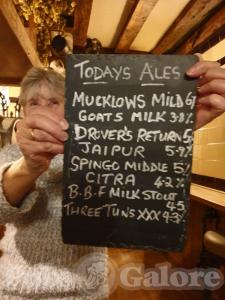 TODAYS ALES
MUCKLOWS MILD
GOATS MILK 3.8%
DROVER'S RETURN 5
JAIPUR 5.9%
SPINGO MIDDLE 5%
CITRA 4.2%
B.B.F MILK STOUT
4.5
THREE TUNS XXX 4.3%
Galore